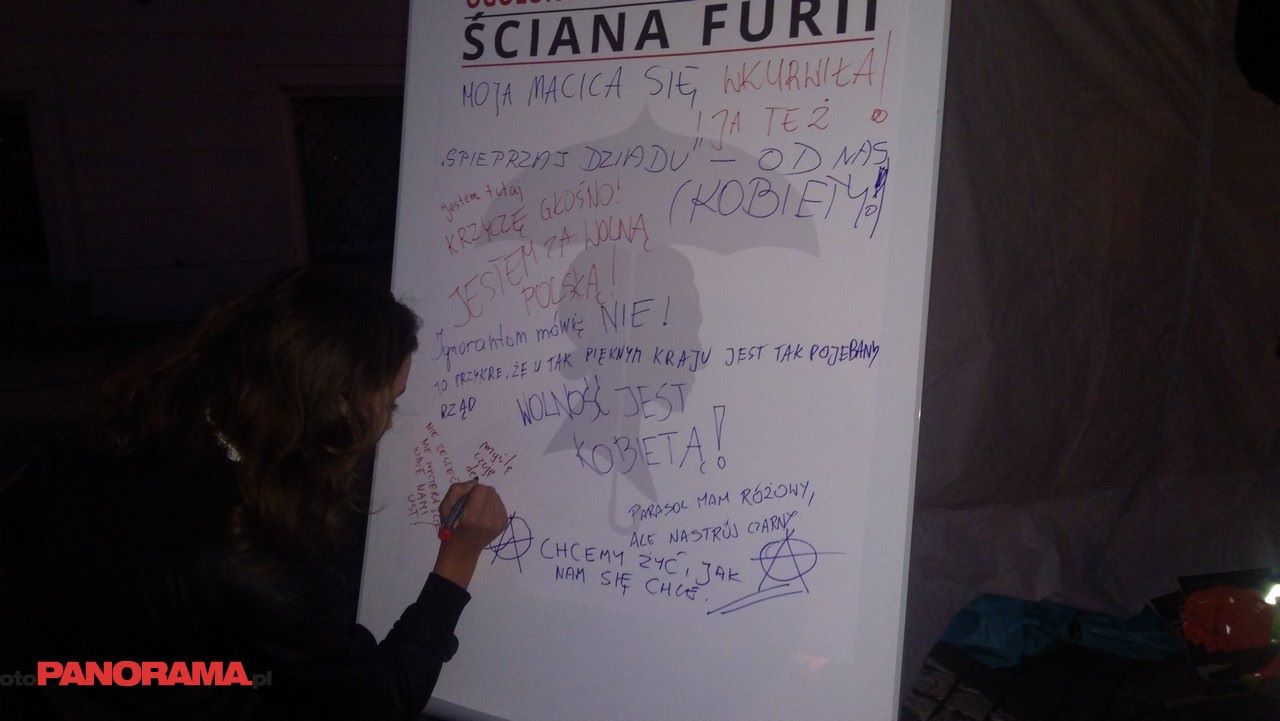 ŚCIANA FURII
MOJA MACICA SIĘ WKURWIŁA!
! JA TEŻ !
„SPIEPRZAJ DZIADU" – OD NAS
(KOBIETY!)
jestem tutaj
KRZYCZĘ GŁOŚNO!
JESTEM ZA WOLNĄ
POLSKĄ!
Ignorantom mówię NIE!
TO PRZYKRE, ŻE W TAK PIĘKNYM KRAJU JEST TAK POJEBANY
RZĄD
WOLNOŚĆ JEST
KOBIETĄ!
NIE
NIE WYCIERAJCIE
SOBIE NAMI
UST!
myślę
czuję
PARASOL MAM RÓŻOWY,
ALE NASTRÓJ CZARNY
CHCEMY ŻYĆ, JAK
NAM SIĘ CHCE.
otoPANORAMA.pl